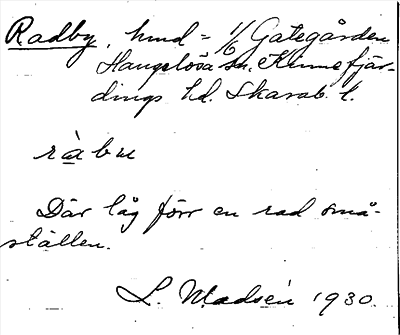 Radby, hmd = 1/6 Gategården
Hangelösa sn. Kinnefjär-
dings hd. Skarab. l.
ràbu
Där låg förr en rad små-
ställen.
L. Madsén 1930.